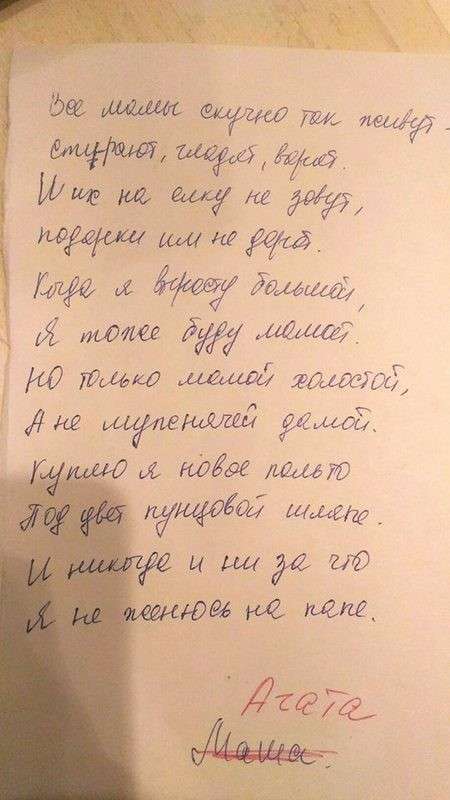 Все мамы скучно так живут -
стирают, гладят, варят.
И их на елку не зовут,
подарки им не дарят.
Когда я вырасту большой,
Я тоже буду мамой.
НО только мамой холостой,
А не мужнячей дамой.
Куплю я новое пальто
Под цвет пунцовой шляпе.
И никогда и ни за что
Я не женюсь на папе.
Агата
Маша.